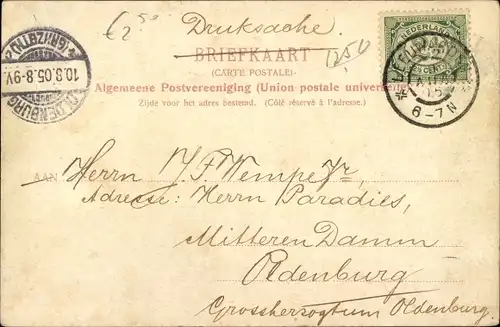 €2⁵⁰
Drucksache.
1250
BRIEFKAART
(CARTE POSTALE)
Algemeene Postvereeniging (Union postale universelle)
Zijde voor het adres bestemd. (Côté réservé à l'adresse.)
NEDERLAND
CENT
6-7N
OLDENBURG
10.8.05.8-9V.
* (GRHZGTH.) *
AAN Herrn H. F. Wempe Jr,
Adresse: Herrn Paradies,
Mitteren Damm
Oldenburg
Grossherzogtum Oldenburg.